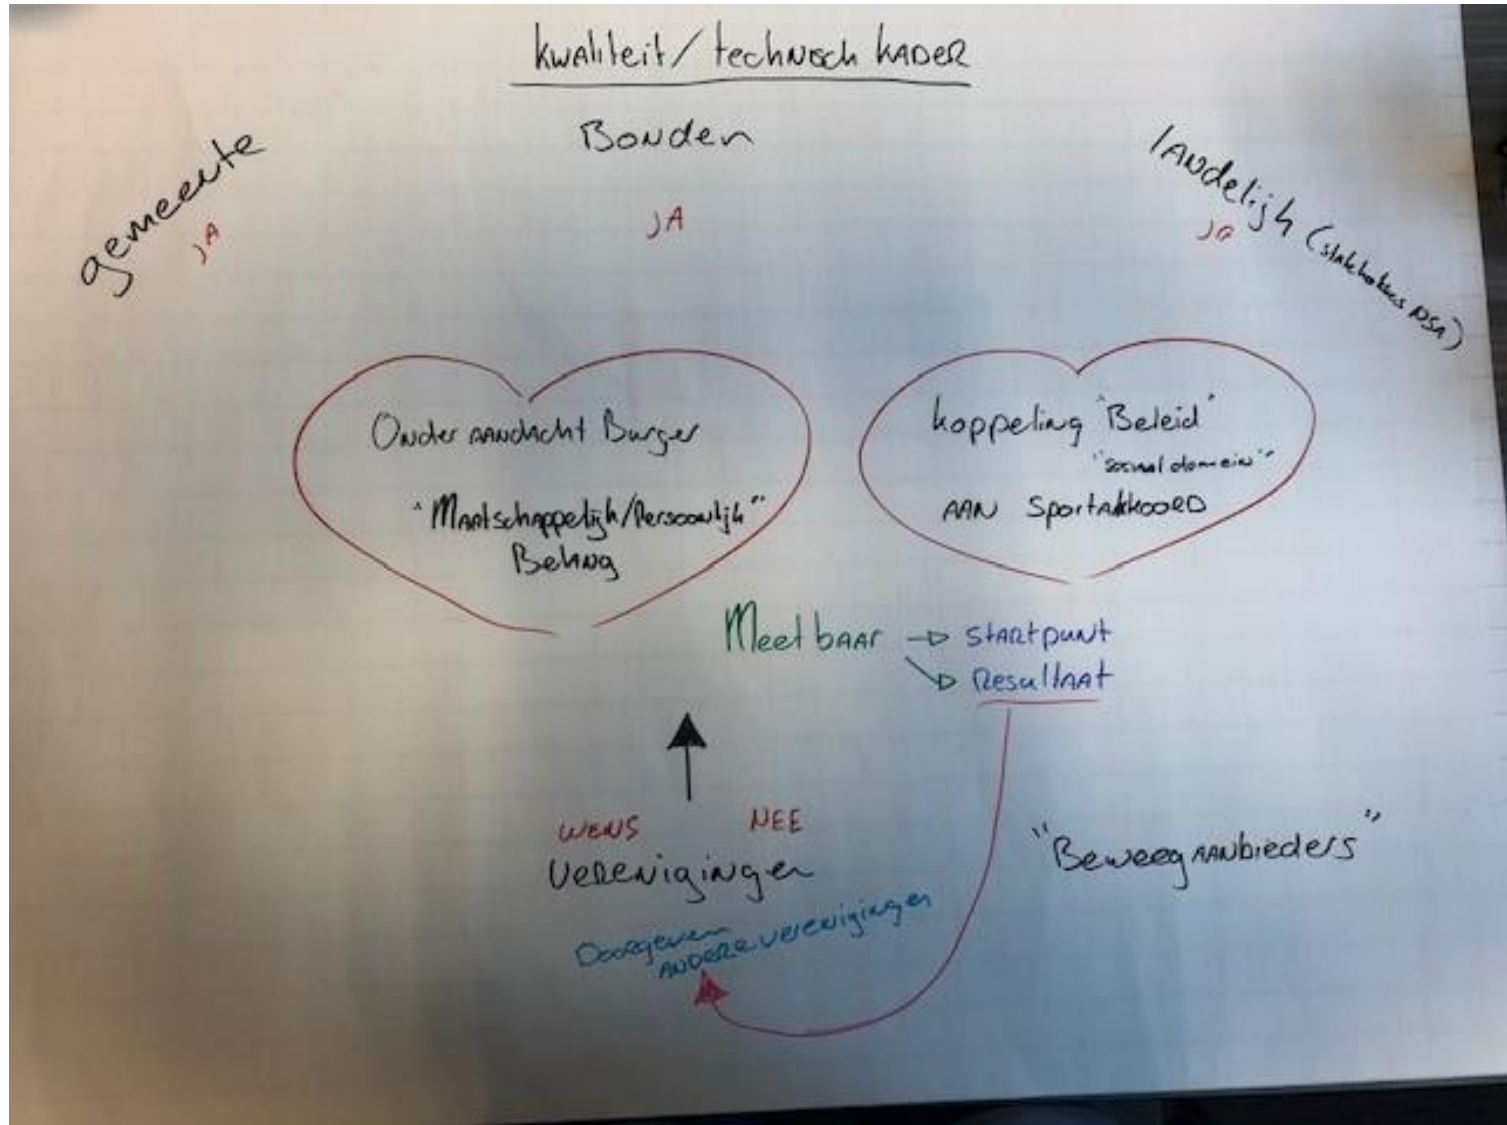 kwaliteit/technisch kader
gemeente
Bonden
landelijk (stakeholders NSA)
JA
JA
ja
Onder aandacht Burger
"Maatschappelijk/Persoonlijk"
Belang
koppeling "Beleid"
"sociaal domein"
AAN Sportakkoord
Meetbaar
startpunt
Resultaat
WENS
NEE
Verenigingen
Doorgeven
andere verenigingen
"Beweegaanbieders"